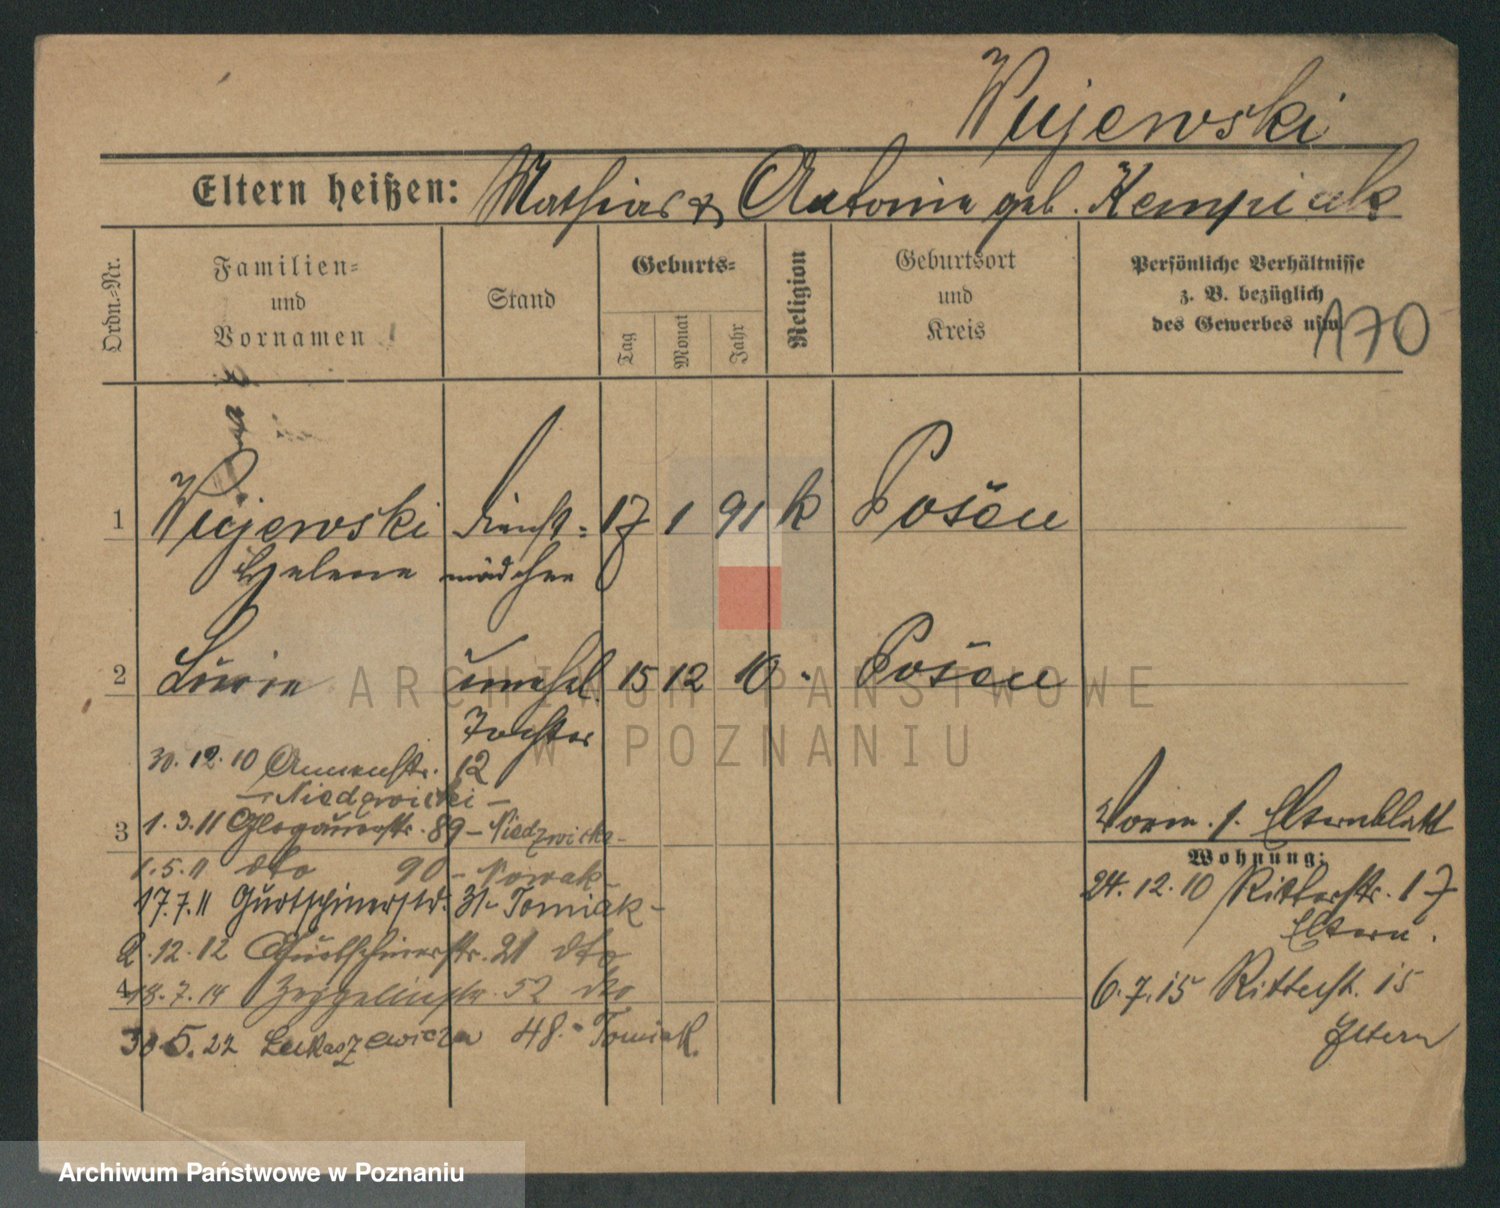 Wujewski
Eltern heißen: Mathias & Antonie geb. Kempiak
Ordn.=Nr.
Familien=
und
Vornamen
Stand
Geburts=
Tag
Monat
Jahr
Religion
Geburtsort
und
Kreis
Persönliche Verhältnisse
z. B. bezüglich
des Gewerbes usw.
170
1 Wujewski Dienst= 17 1 91 k Posen
Helene mädchen
2 unehel. 15 12 10 Posen
Tochter
30.12.10 Annenstr. 12
– Niedzwicki –
3 1.3.11 Glogauerstr. 89 – Niedzwicka –
1.5.11 dto 90 – Nowak –
17.7.11 Gurtschinerstr. 31 – Tomiak –
2.12.12 Gurtschinerstr. 21 dto
4 18.7.14 Zeppelinstr. 52 dto
30.5.22 Łukaszewicza 48. Tomiak.
Vorm. s. Elternblatt
Wohnung:
24.12.10 Ritterstr. 17
Eltern.
6.7.15 Ritterst. 15
Eltern
ARCHIWUM PAŃSTWOWE
W POZNANIU
Archiwum Państwowe w Poznaniu